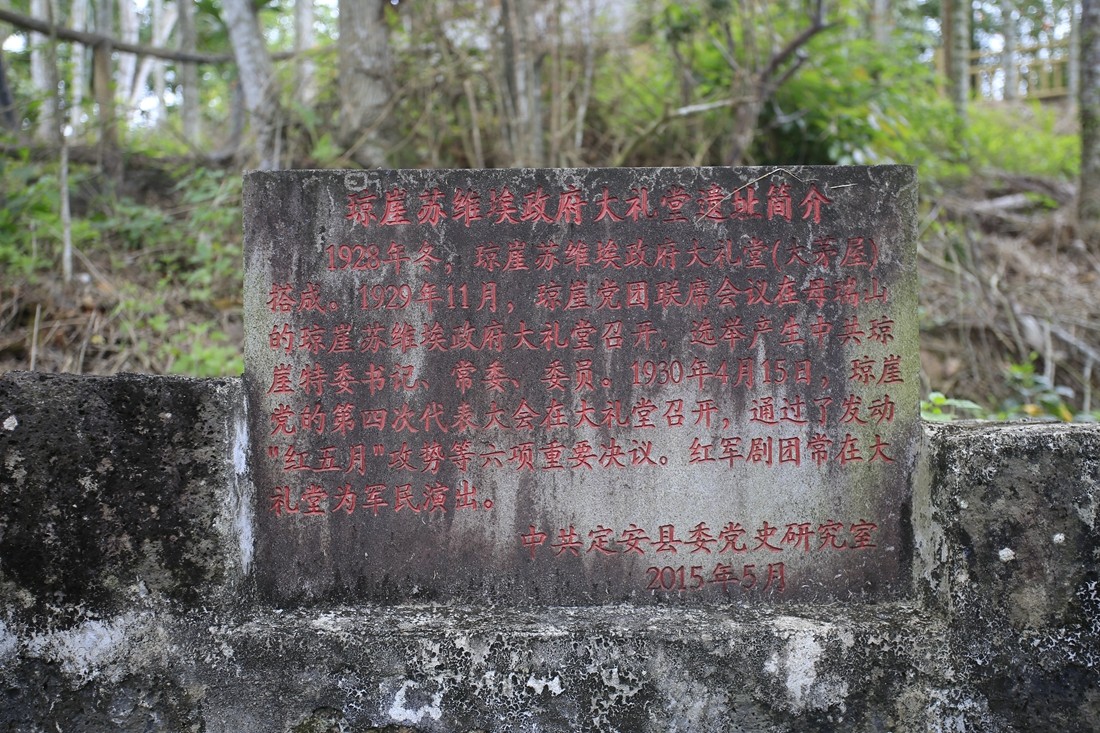 琼崖苏维埃政府大礼堂遗址简介
1928年冬，琼崖苏维埃政府大礼堂(大茅屋)
搭成。1929年11月，琼崖党团联席会议在母瑞山
的琼崖苏维埃政府大礼堂召开，选举产生中共琼
崖特委书记、常委、委员。1930年4月15日，琼崖
党的第四次代表大会在大礼堂召开，通过了发动
"红五月"攻势等六项重要决议。红军剧团常在大
礼堂为军民演出。
中共定安县委党史研究室
2015年5月